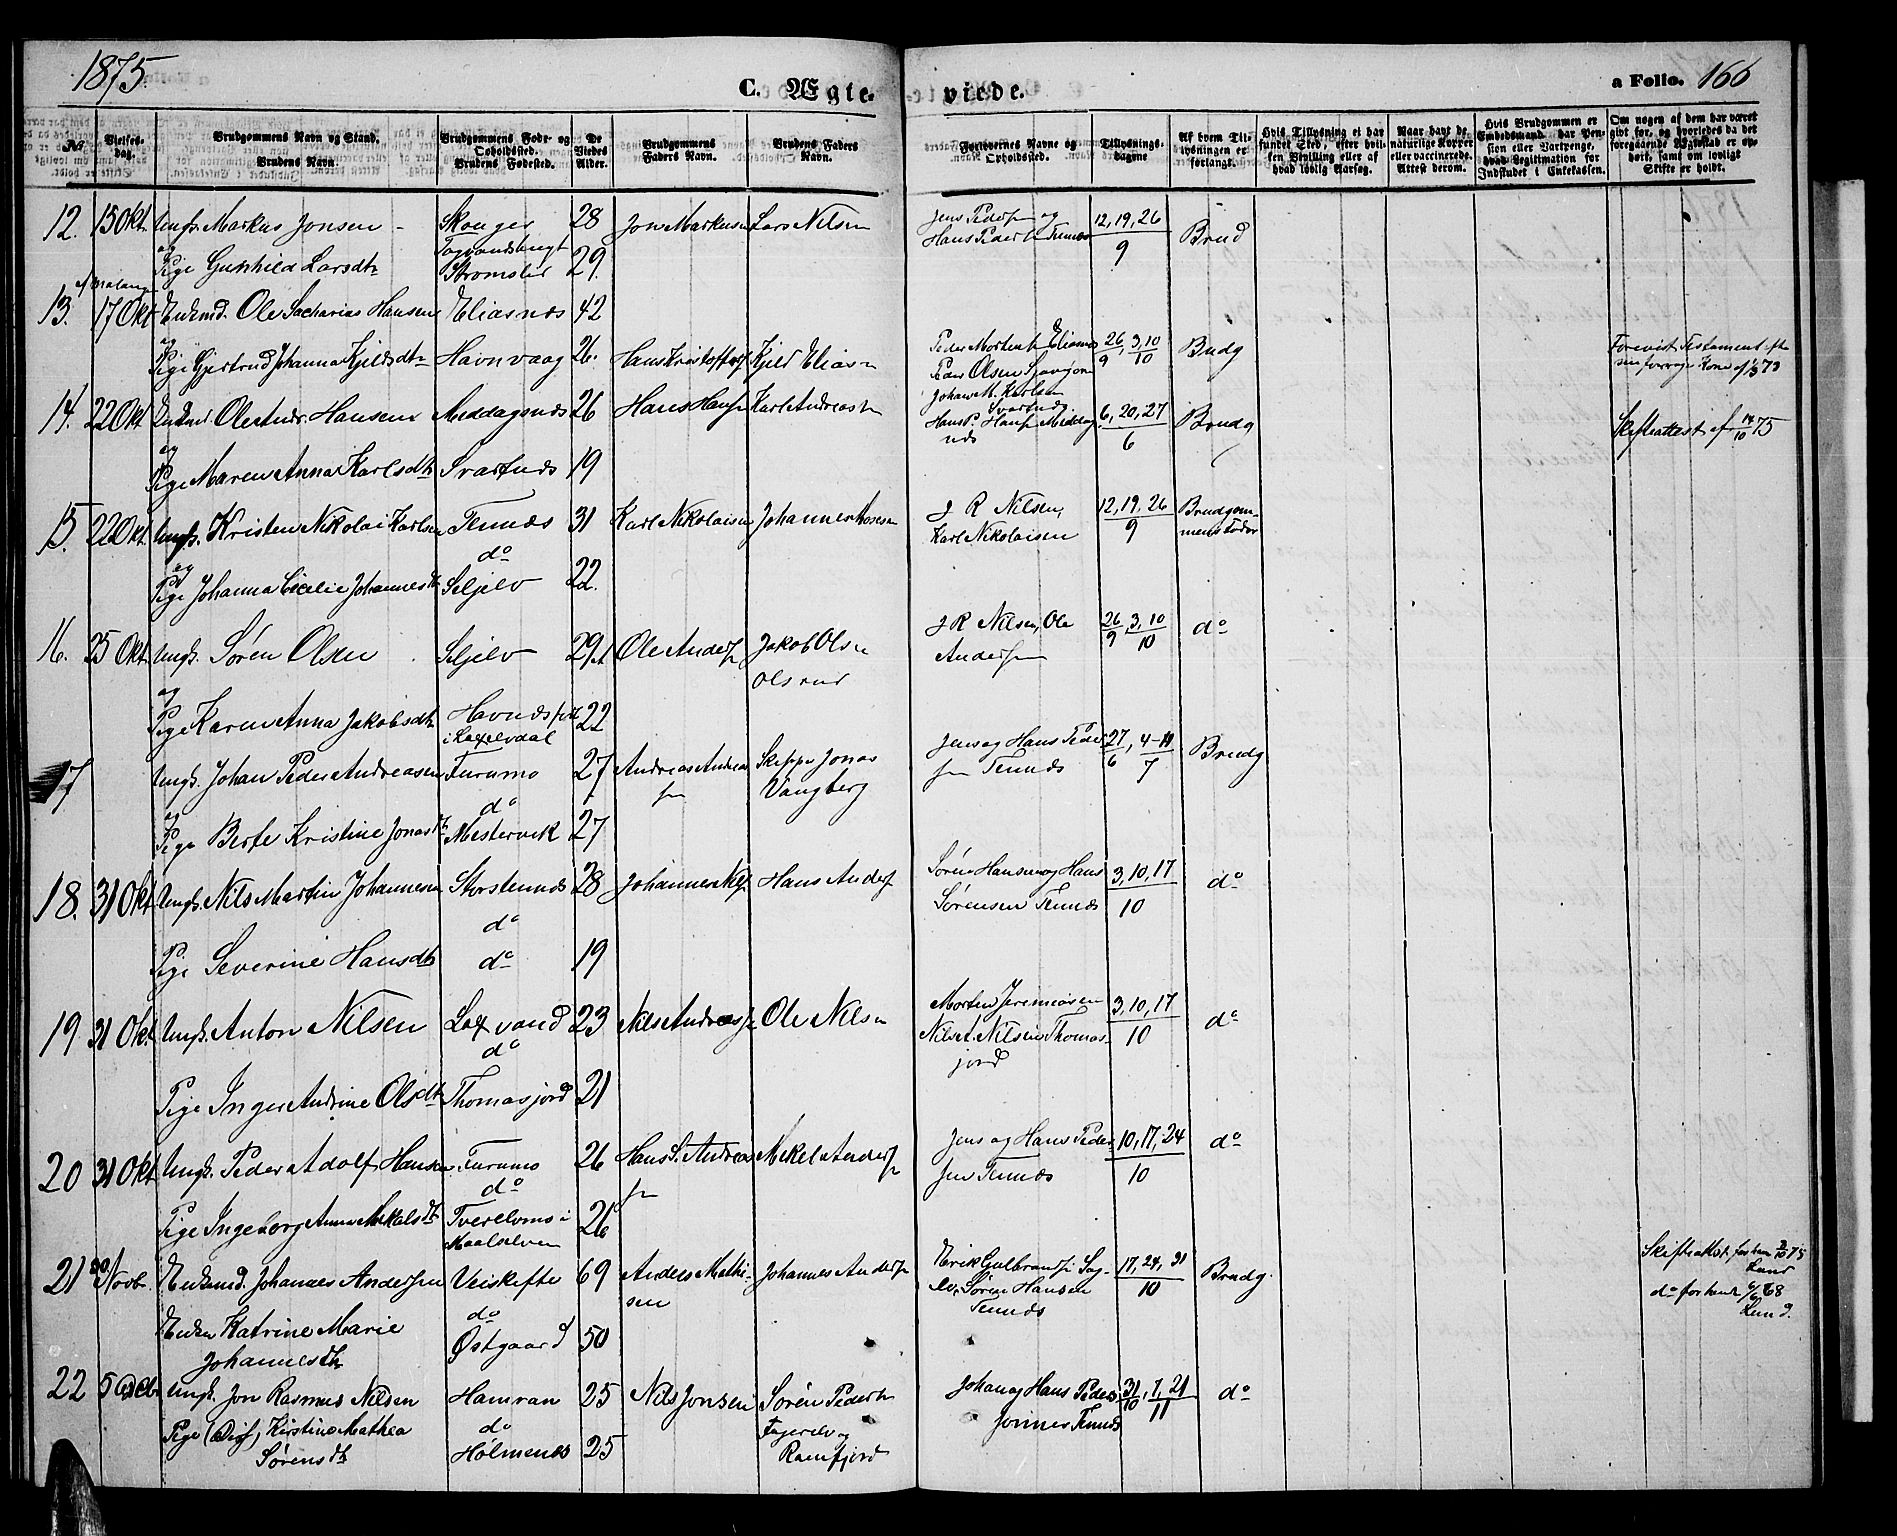 1875.
C. Ægte-
viede.
a Folio. 166
No. Vielses-dag. Brudgommens Navn og Stand. Brudens Navn. Brudgommens Føde- og Opholdssted. Brudens Fødested. De Viedes Alder. Brudgommens Faders Navn. Brudens Faders Navn.
Forlovernes Navne og Opholdssted. Tillysnings-dagene Af hvem Tillysningen er forlangt. Hvis Tillysning ei har fundet Sted, efter hvilken Bevilling eller af hvad lovlig Aarsag. Naar havt de naturlige Kopper eller vaccinerede. Attest derom. Hvis Brudgommen er Embedsmand, har Pension eller Vartpenge, hvad Legitimation for Indskudet i Enkekassen. Om nogen af dem har været gift før, og hvorledes da det foregaaende Ægteskab er ophævet, samt om lovligt Skifte er holdt.
12. 15 Okt. Ungk. Markus Jonsen - 28 Jon Markusen Lars Nilsen
Jens Peders. og Hans Peders. Tennæs 12, 19, 26 / 9 Brud
og
Pige Gunhild Larsdtr 29.
13. 17 Okt Enkemd. Ole Sacharias Hansen Eliasnæs 42
og
Pige Gjertrud Johanna Kjeldsdtr Havnvaag 26. Hans Kristoffers. Kjeld Eliasn
Peder Mortens. Eliasnæs 26/9, 3, 10/10 Brudg
Peder Olsen
Forevist Testament
14. 22 Okt Enkemd. Ole Andr. Hansen Meddagsnæs 26 Hans Hans. Karl Andreas.
Johan M. Karlsen Svartnæs
Hans P. Hans. Middagnæs 6, 20, 27 / 6 Brudg
Skifteattest af 14/10 75
og
Pige Maren Anna Karlsdtr Svartnæs 19
15. 22 Okt. Ungk. Kristen Nikolai Karlsen Tennæs 31 Karl Nikolaisen Johannes Mosesn
J R Nilsen, Karl Nikolaisen 12, 19, 26 / 9 Brudgommens Fader
do
og
Pige Johanna Cecelie Johannesdtr Seljelv 22.
16. 25 Okt. Ungk. Søren Olsen Seljelv 29 Ole Anders. Jakob Olsn
J R Nilsen, Ole Anders. 26/9, 3, 10/10 do
og
Pige Karen Anna Jakobsdtr 22
17 Ungk. Johan Peder Andreasen Furumo 27 Andreas Andreas. Skipper Jonas Vangberg
Jens og Hans Peders. Tennæs 27/6, 4-11/7 Brudg
do
og
Pige Berte Kristine Jonasdtr Mestervik 27
18. 31 Okt. Ungk. Nils Martin Johannesen Storstennæs 28 Johannes Nils. Hans Anders.
Søren Hansen og Hans Sørensen Tennæs 3, 10, 17 / 10 do
do
Pige Severine Hansdtr do 19
19 31 Okt. Ungk. Anton Nilsen Laxvand 23 Nils Andreas. Ole Nilsn
Morten Jeremiasen
Nils A. Nilsen Thomasjord 3, 10, 17 / 10 do
do
Pige Inger Andrine Olsdtr Thomasjord 21
20 31 Okt Ungk. Peder Adolf Hansen Furumo 26 Hans S. Andreas. Mekel Anders.
Jens og Hans Pedersen Tennæs 10, 17, 24 / 10 do
do
Pige Ingeborg Anna Mekelsdtr Tverelvmo i Maalselven 26
21 30 Novbr. Enkemd. Johannes Andersen Veiskifte 69 Anders Mathisen Johannes Anders.
Erik Gulbrands. Sagelv, Søren Hansen Tennæs 17, 24, 31 / 10 Brudg.
Skifteattest for ham 2/10 75 Lund
do for hende 6/6 68 Lund.
do
Enken Katrine Marie Johannesdtr Østgaard 50
22 5 Decbr Ungk. Jon Rasmus Nilsen Hamran 25 Nils Jonsen Søren Peders.
Johan og Hans Peders. Tennæs 31/10, 7, 21/11 do
do
Pige (Dis.) Kirstine Mathea Sørensdtr Holmenæs 25 Fagerelv og Ramfjord